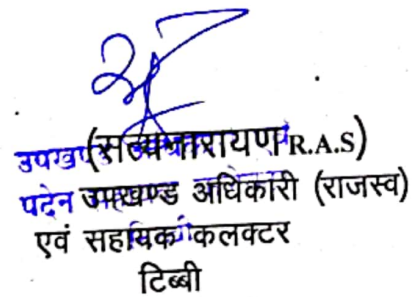 (सत्यनारायण R.A.S)
पदेन उपखण्ड अधिकारी (राजस्व)
एवं सहायक कलक्टर
टिब्बी